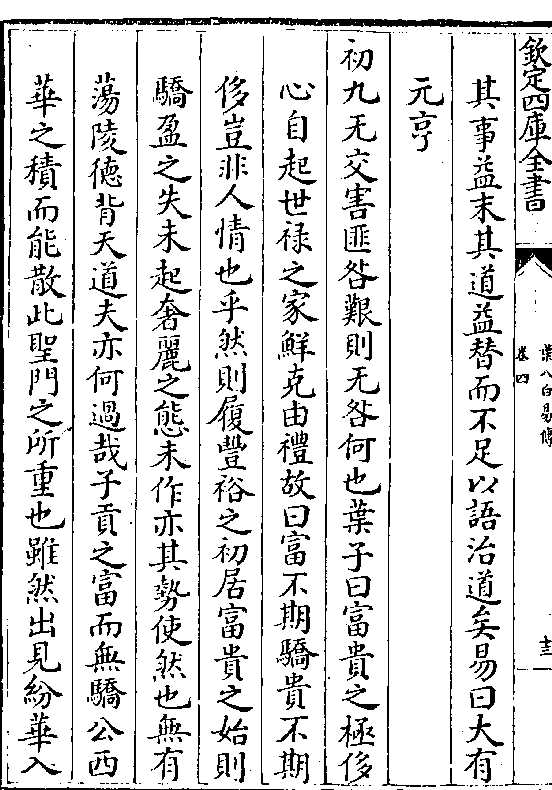 欽定四庫全書
葉八白易傳
卷四
圭
其事益末其道益替而不足以語治道矣易曰大有
元亨
初九无交害匪咎艱則无咎何也葉子曰富貴之極侈
心自起世禄之家鮮克由禮故曰富不期驕貴不期
侈豈非人情也乎然則履豐裕之初居富貴之始則
驕盈之失未起奢麗之態未作亦其勢使然也無有
蕩陵德背天道夫亦何過哉子貢之富而無驕公西
華之積而能散此聖門之所重也雖然出見紛華入